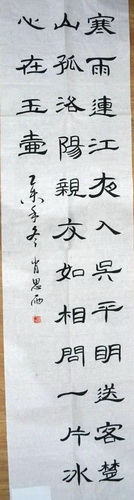 寒雨連江夜入吳平明送客楚
山孤洛陽親友如相問一片冰
心在玉壺
乙未年冬肖思雨